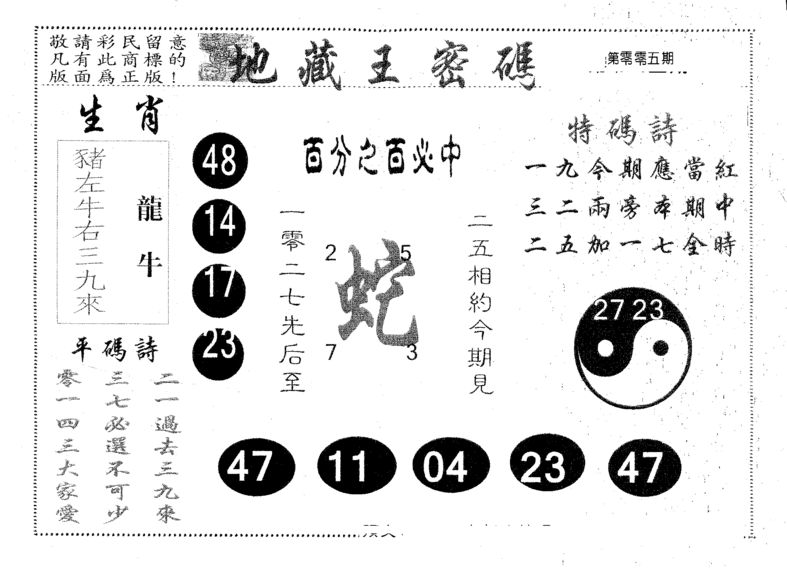 敬請彩民留意
凡有此商標的
版面爲正版！
地藏王密碼
第零零五期
生肖
豬左牛右三九來
龍牛
48
14
17
23
百分之百必中
一零二七先后至
2
5
蛇
7
3
二五相約今期見
特碼詩
一九今期應當紅
三二兩旁本期中
二五加一七全時
27 23
平碼詩
二一過去三九來
三七必選不可少
零一四三大家愛
47
11
04
23
47